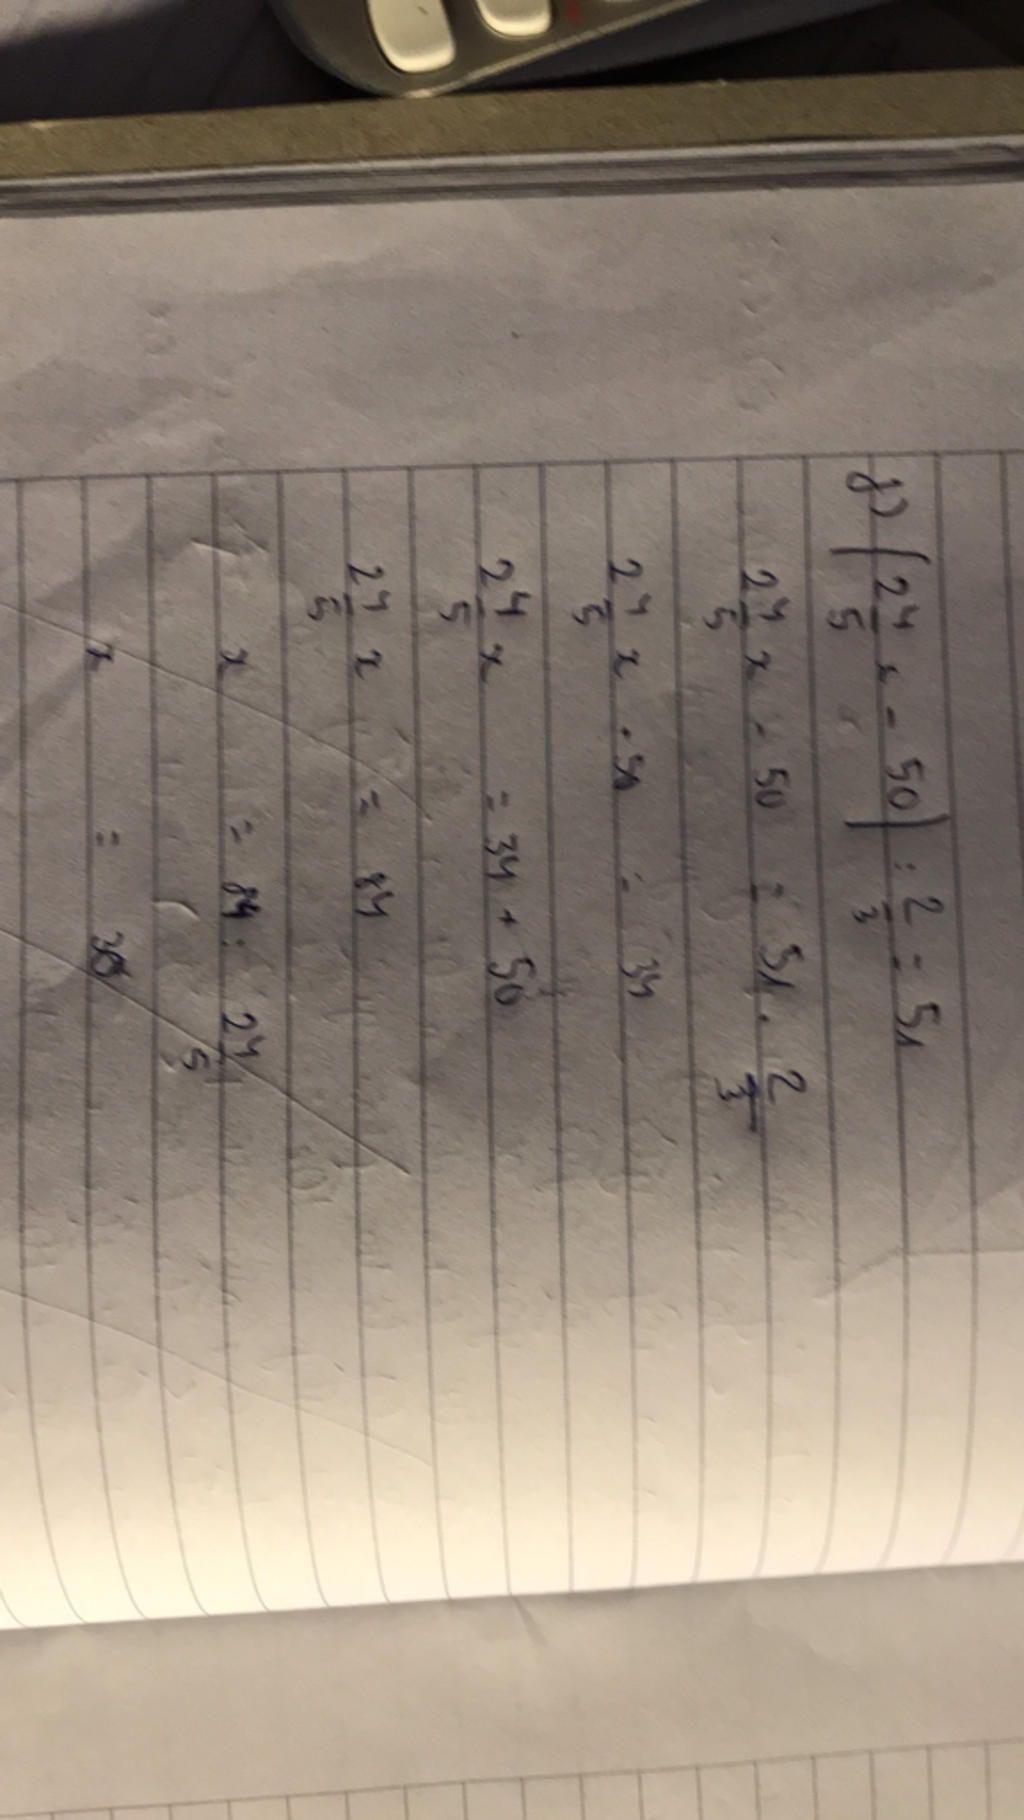 g) ( 24/5 x - 50 ) : 2/3 = 51
24/5 x - 50 = 51 . 2/3
24/5 x - 50 = 34
24/5 x = 34 + 50
24/5 x = 84
x = 84 : 24/5
x =